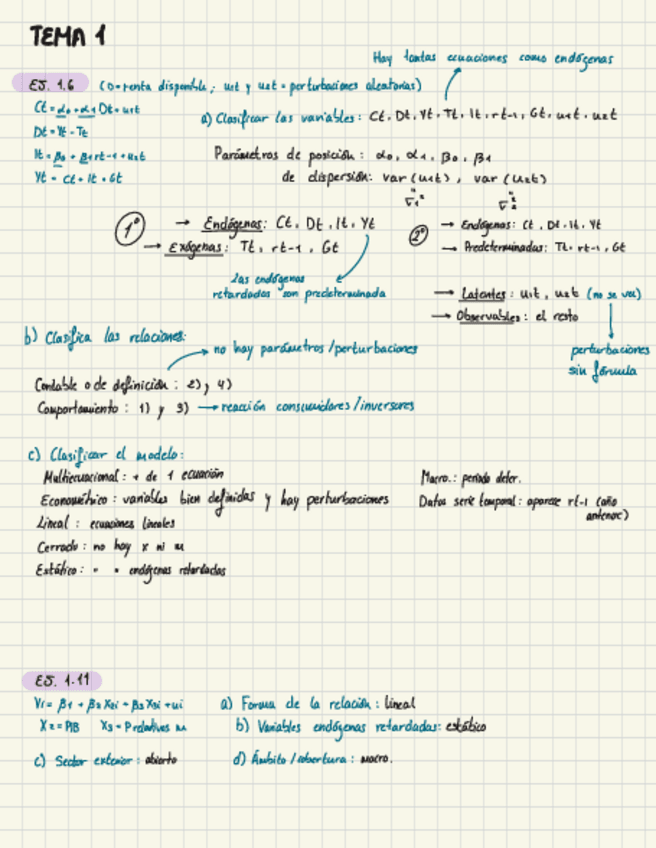 TEMA 1
Hay tantas ecuaciones como endógenas
EJ. 1.6 (D=renta disponible; u1t y u2t = perturbaciones aleatorias)
Ct = α0 + α1 Dt + u1t
a) Clasificar las variables: Ct, Dt, Yt, Tt, It, rt-1, Gt, u1t, u2t
Dt = Yt - Tt
It = β0 + β1 rt-1 + u2t
Parámetros de posición: α0, α1, β0, β1
Yt = Ct + It + Gt
de dispersión: var (u1t), var (u2t)
σ1² σ2²
1º → Endógenas: Ct, Dt, It, Yt
→ Exógenas: Tt, rt-1, Gt
2º → Endógenas: Ct, Dt, It, Yt
→ Predeterminadas: Tt, rt-1, Gt
las endógenas
retardadas son predeterminada
→ Latentes: u1t, u2t (no se ven)
→ Observables: el resto
perturbaciones
sin fórmula
b) Clasifica las relaciones:
no hay parámetros/perturbaciones
Contable o de definición: 2), 4)
Comportamiento: 1) y 3) → reacción consumidores/inversores
c) Clasificar el modelo:
Multiecuacional: + de 1 ecuación
Macro.: periodo deter.
Econométrico: variables bien definidas y hay perturbaciones
Datos serie temporal: aparece rt-1 (año
anterior)
Lineal: ecuaciones lineales
Cerrado: no hay x ni m
Estático: " " endógenas retardadas
EJ. 1.11
Yi = β1 + β2 X2i + β3 X3i + ui
a) Forma de la relación: lineal
X2 = PIB X3 = P relativos m
b) Variables endógenas retardadas: estático
c) Sector exterior: abierto
d) Ámbito/cobertura: macro.